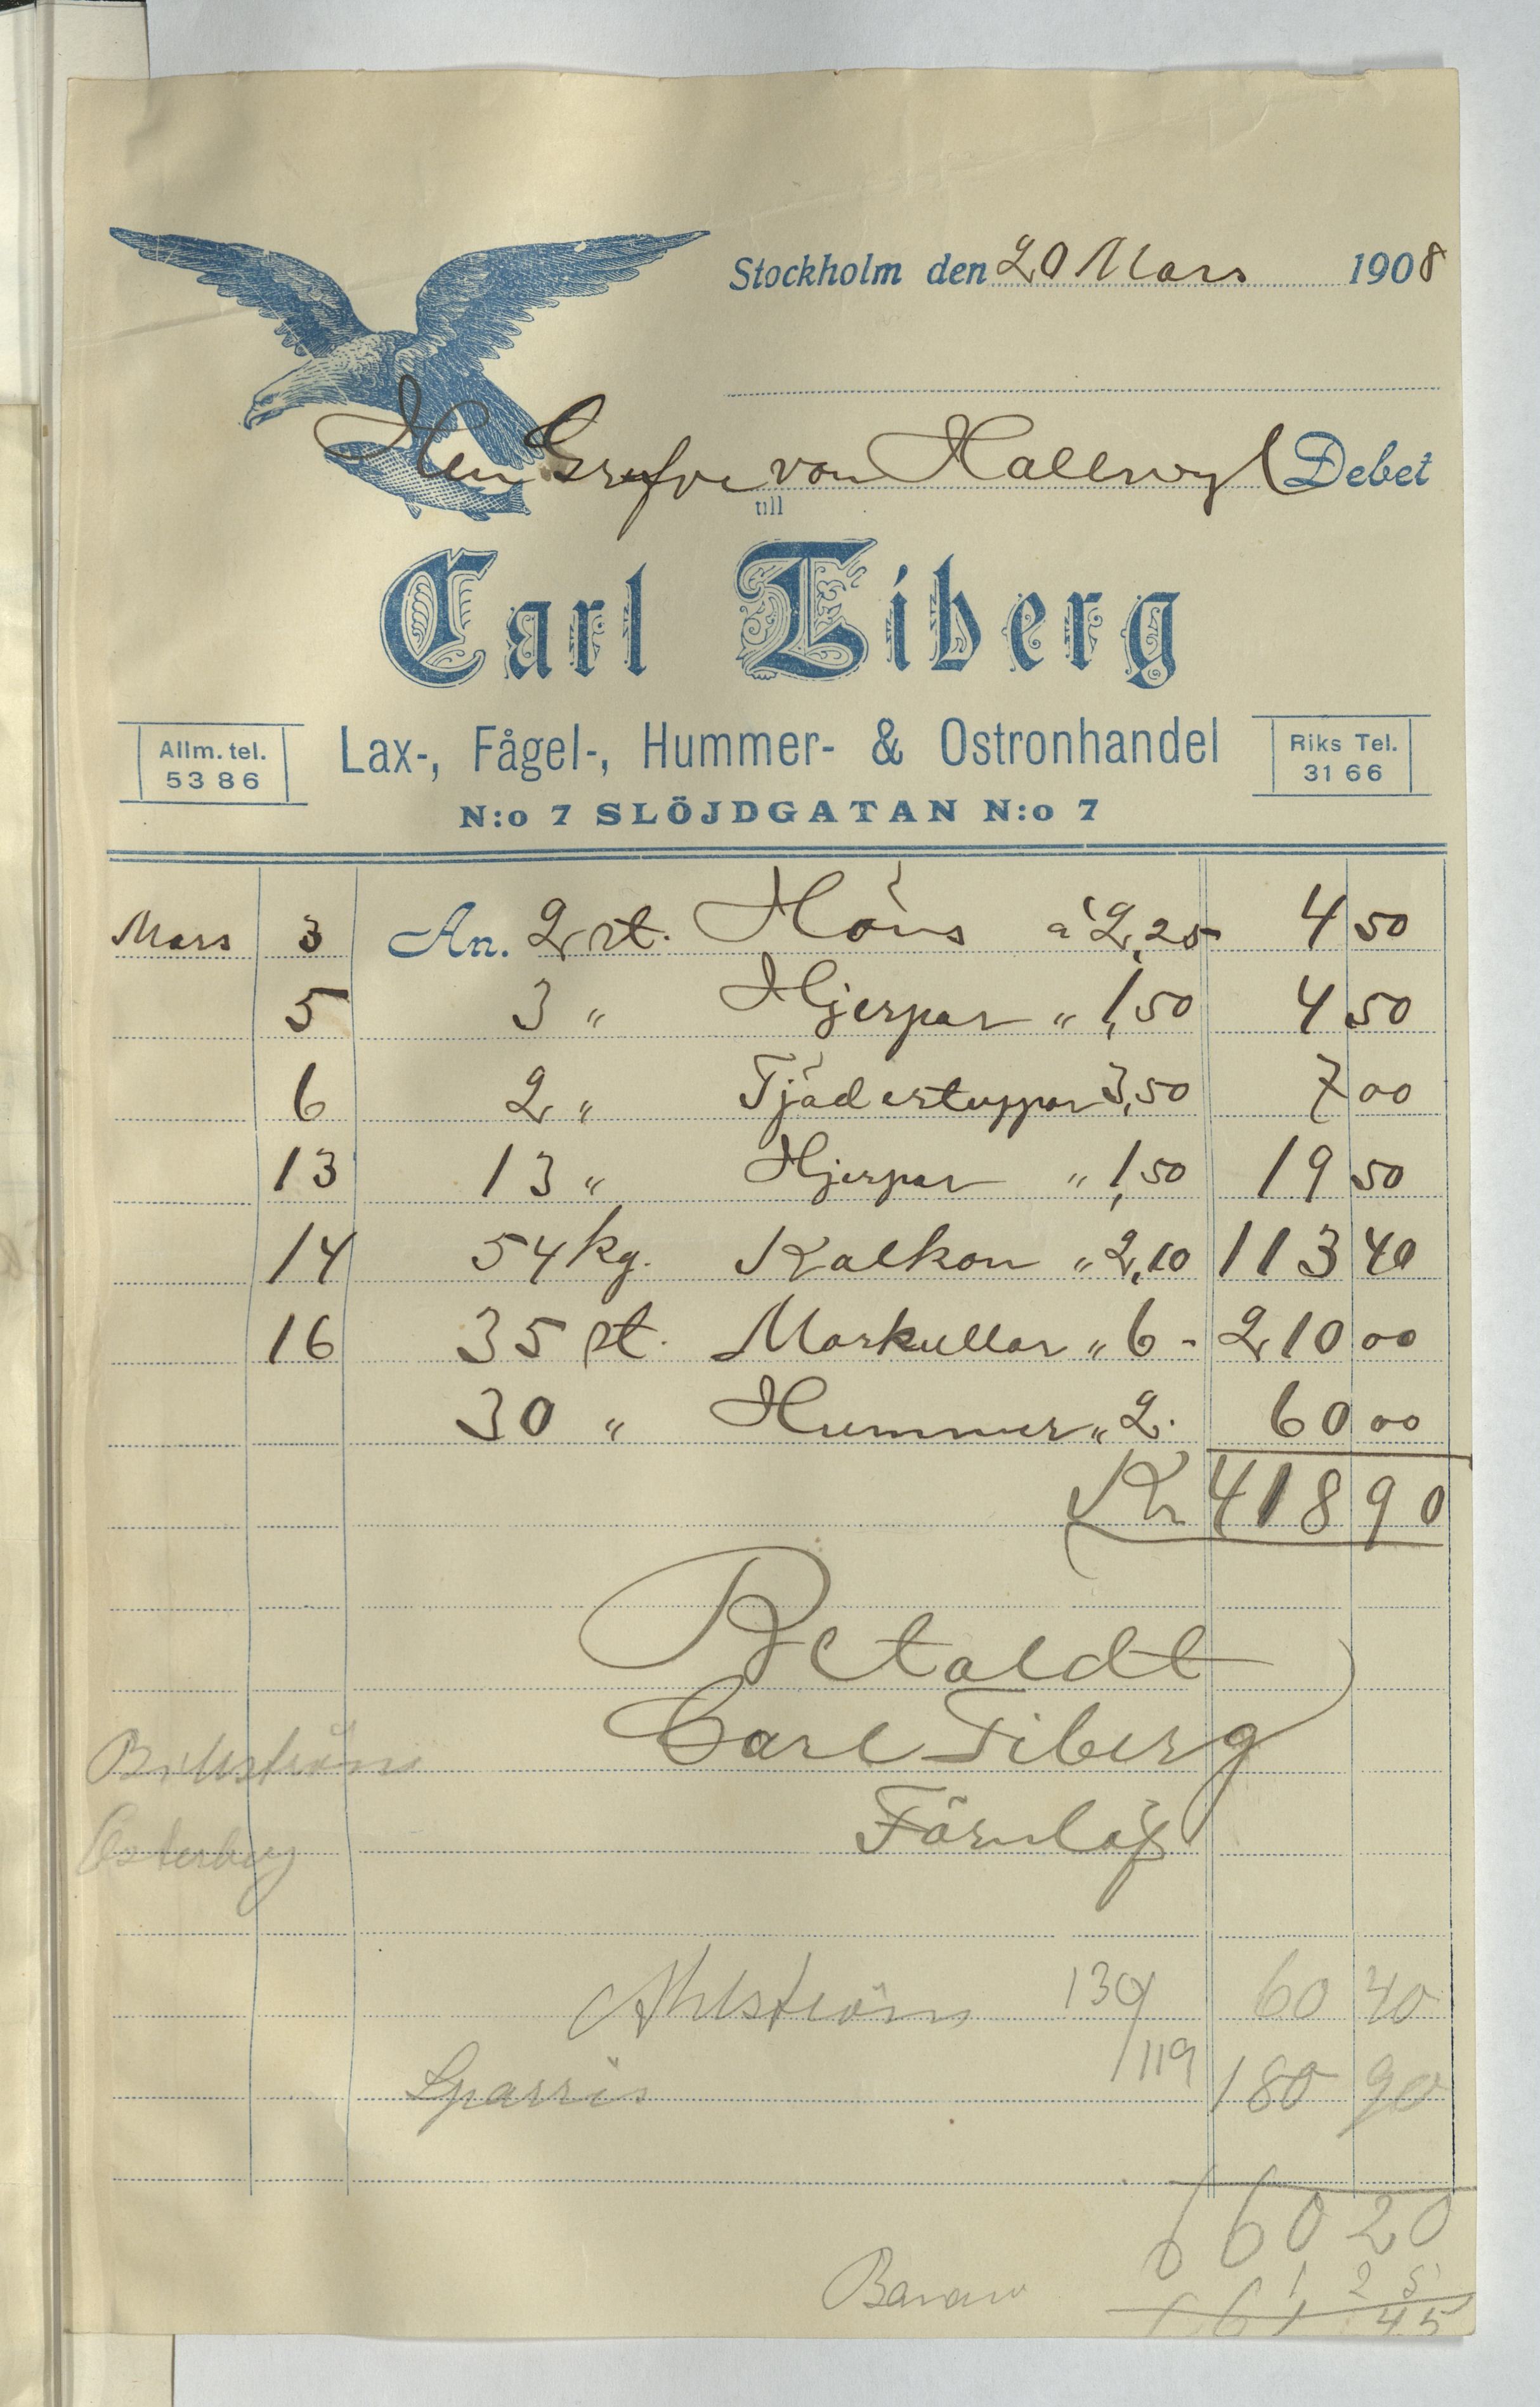 Stockholm den 20 Mars 1908
Herr Grefve von Hallwyl Debet
till
Carl Tiberg
Allm. tel. 5386
Lax-, Fågel-, Hummer- & Ostronhandel
Riks Tel. 3166
N:o 7 SLÖJDGATAN N:o 7
Mars 3 An. 2 st. Höns à 2,25 4 50
5 3 " Hjerpar " 1,50 4 50
6 2 " Tjädertuppar 3,50 7 00
13 13 " Hjerpar " 1,50 19 50
14 54 kg. Kalkon " 2,10 113 40
16 35 st. Morkullor " 6 - 210 00
30 " Hummer " 2. 60 00
Kr 418 90
Betaldt
Carl Tiberg
Österberg
Ahlström 139 60 40
/119
Sparris 180 90
660 20
1 25
661 45